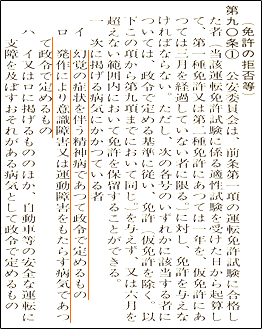 (免許の拒否等)
第九〇条① 公安委員会は、前条第一項の運転免許試験に合格
た者(当該運転免許試験に係る適性試験を受けた日から起算し
て、第一種免許又は第二種免許にあつては一年を、仮免許にあ
つては三月を経過していない者に限る。)に対し、免許を与えな
ければならない。ただし、次の各号のいずれかに該当する者に
ついては、政令で定める基準に従い、免許(仮免許を除く。以
下この項から第九項までにおいて同じ。)を与えず、又は六月を
超えない範囲内において免許を保留することができる。
一 次に掲げる病気にかかつている者
イ 幻覚の症状を伴う精神病であつて政令で定めるもの
ロ 発作により意識障害又は運動障害をもたらす病気であつ
て政令で定めるもの
ハ イ又はロに掲げるもののほか、自動車等の安全な運転に
支障を及ぼすおそれがある病気として政令で定めるもの